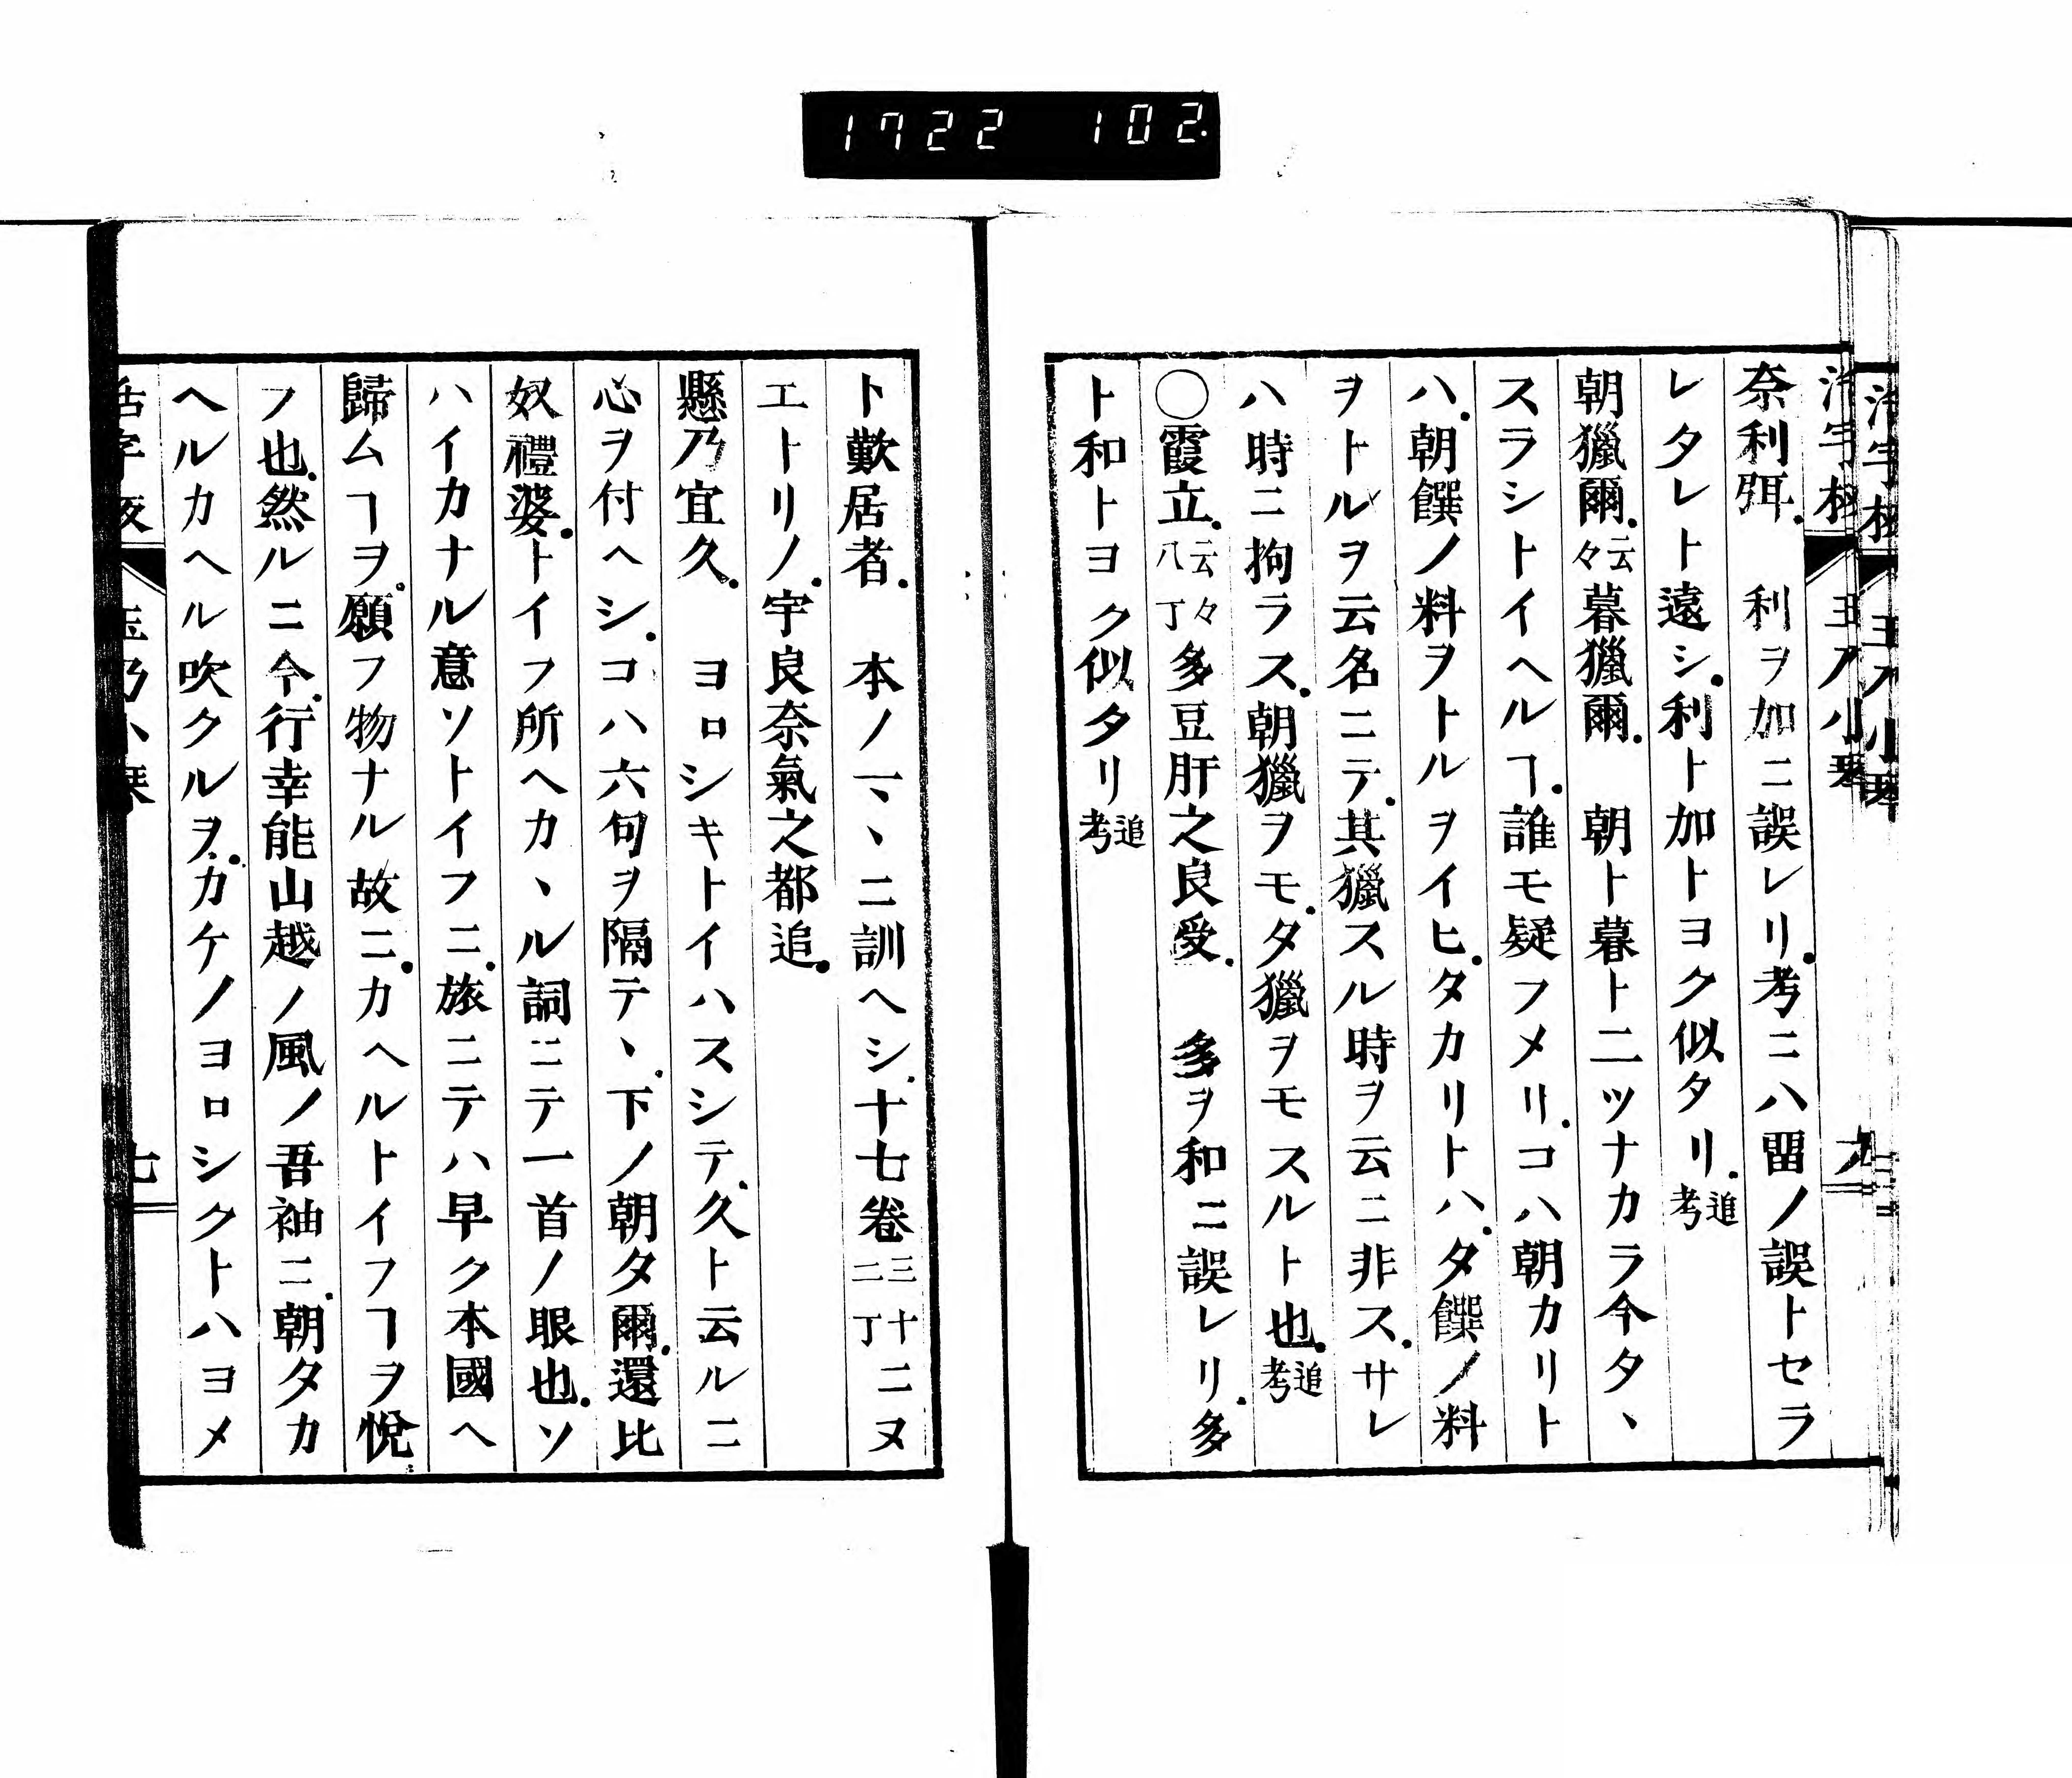 1722 102
奈利弭．　利ヲ加ニ誤レリ．考ニハ畱ノ誤トセラ
レタレト遠シ．利ト加トヨク似タリ．追考
朝獵爾．云々暮獵爾．　朝ト暮ト二ツナカラ今タヽ
スラシトイヘルヿ．誰モ疑フメリ．コハ朝カリト
ハ．朝饌ノ料ヲトルヲイヒ．夕カリトハ．夕饌ノ料
ヲトルヲ云名ニテ．其獵スル時ヲ云ニ非ス．サレ
ハ時ニ拘ラス．朝獵ヲモ．夕獵ヲモスルト也．追考
〇霞立．云々八丁多豆肝之良受．　多ヲ和ニ誤レリ．多
ト和トヨク似タリ追考
ト歎居者．　本ノマヽニ訓ヘシ．十七卷三十二丁ニヌ
エトリノ．宇良奈氣之都追．
懸乃宜久．　ヨロシキトイハスシテ．久ト云ルニ
心ヲ付ヘシ．コハ六句ヲ隔テヽ．下ノ朝夕爾．還比
奴禮婆．トイフ所ヘカヽル詞ニテ一首ノ眼也．ソ
ハイカナル意ソトイフニ．旅ニテハ早ク本國ヘ
歸ムヿヲ．願フ物ナル故ニ．カヘルトイフヿヲ悅
フ也．然ルニ今．行幸能山越ノ風ノ吾袖ニ．朝夕カ
ヘルカヘル吹クルヲ．カケノヨロシクトハヨメ
七